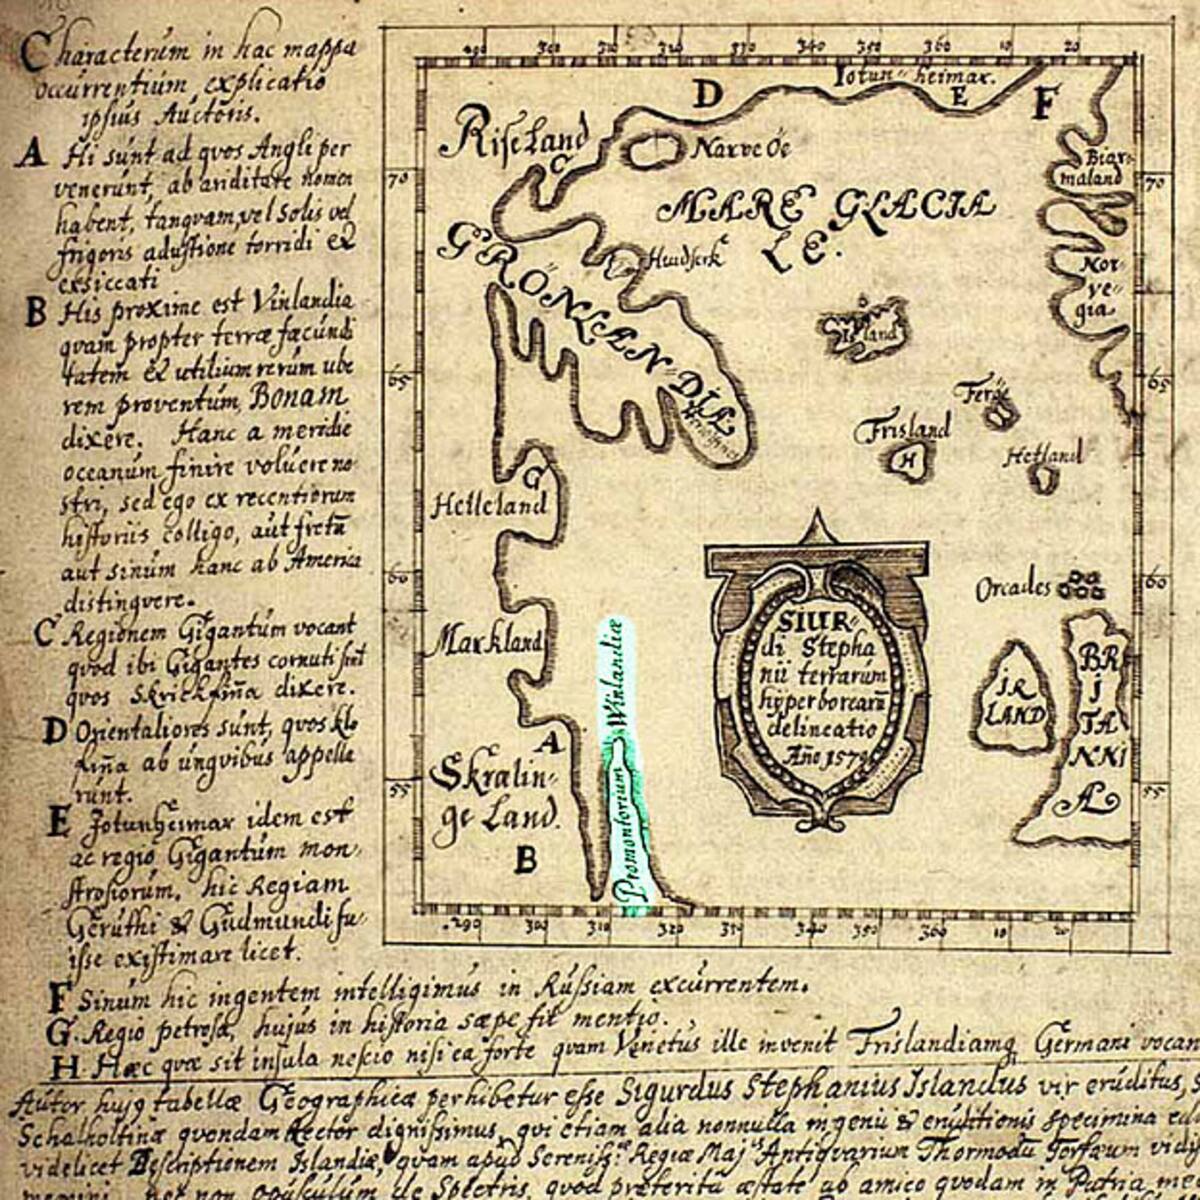 Characterum in hac mappa
occurrentium explicatio
ipsius Auctoris.
A Hi sunt ad quos Angli per
venerunt, ab ariditate nomen
habent, tanquam vel Solis vel
frigoris adustione torridi et
exsiccati
B His proxime est Vinlandia
quam propter terræ fœcundi
tatem et utilium rerum ube
rem proventum, Bonam
dixere. Hanc a meridie
oceanum finire voluere no
stri, sed ego ex recentiorum
historiis colligo, aut fretū
aut sinum hanc ab America
distinguere.
C Regionem Gigantum vocant
quod ibi Gigantes cornuti sint
quos Skrickfiña dixere.
D Orientaliores sunt, quos Klo
fiña ab unguibus appella
runt.
E Jotunheimar idem est
ac regio Gigantum mon-
strosiorum, hic Regiam
Geruthi & Gudmundi fu-
isse existimare licet.
F Sinum hic ingentem intelligimus in Russiam excurrentem.
G. Regio petrosa, hujus in historia sæpe fit mentio.
H. Hæc quæ sit insula nescio nisi ea forte quam Venetus ille invenit Frislandiamq Germani vocan
Autor hujq tabellæ Geographicæ perhibetur esse Sigurdus Stephanius Islandus vir eruditus, S
Schalholtinæ quondam Rector dignissimus, qui etiam alia nonnulla ingenii & eruditionis specimina
videlicet Descriptionem Islandiæ, quam apud Sereniss. Regiæ Maj. Antiquarium Thormodū Torfæum vidi
nec non opusculum de Spectris, quod præterita æstate ab amico quodam in Patria
290 300 310 320 330 340 350 360 10 20
D
Jotun-heimar.
E
F
Riseland
C
Narve Oe
Biar
maland
70
70
MARE GLACIA
LE.
GRONLANDIA
Huidserk
Nor
ve
gia
Island
65
65
Feroe
Frisland
H
Hetland
G
Helleland
60
60
Orcades
Markland
Promontorium Winlandiæ
SIUR-
di Stepha
nii terrarum
hyperborearū
delineatio
Año 1570
IR
LAND
BR
I
TA
NNI
A
A
Skralin-
ge Land.
B
55
55
290 300 310 320 330 340 350 360 10 20